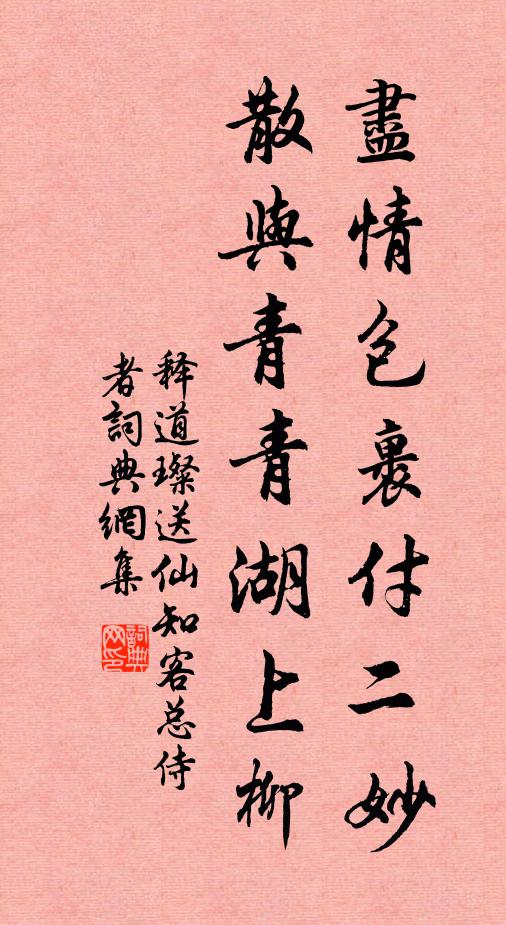 盡情包裹付二妙
散與青青湖上柳
释道璨送仙知客总侍
者詞典網集
詞典网印